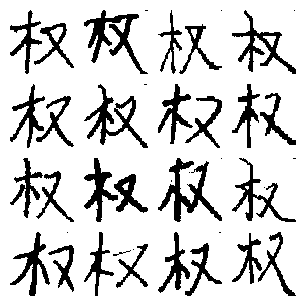 权权权权
权权权权
权权权权
权权权权